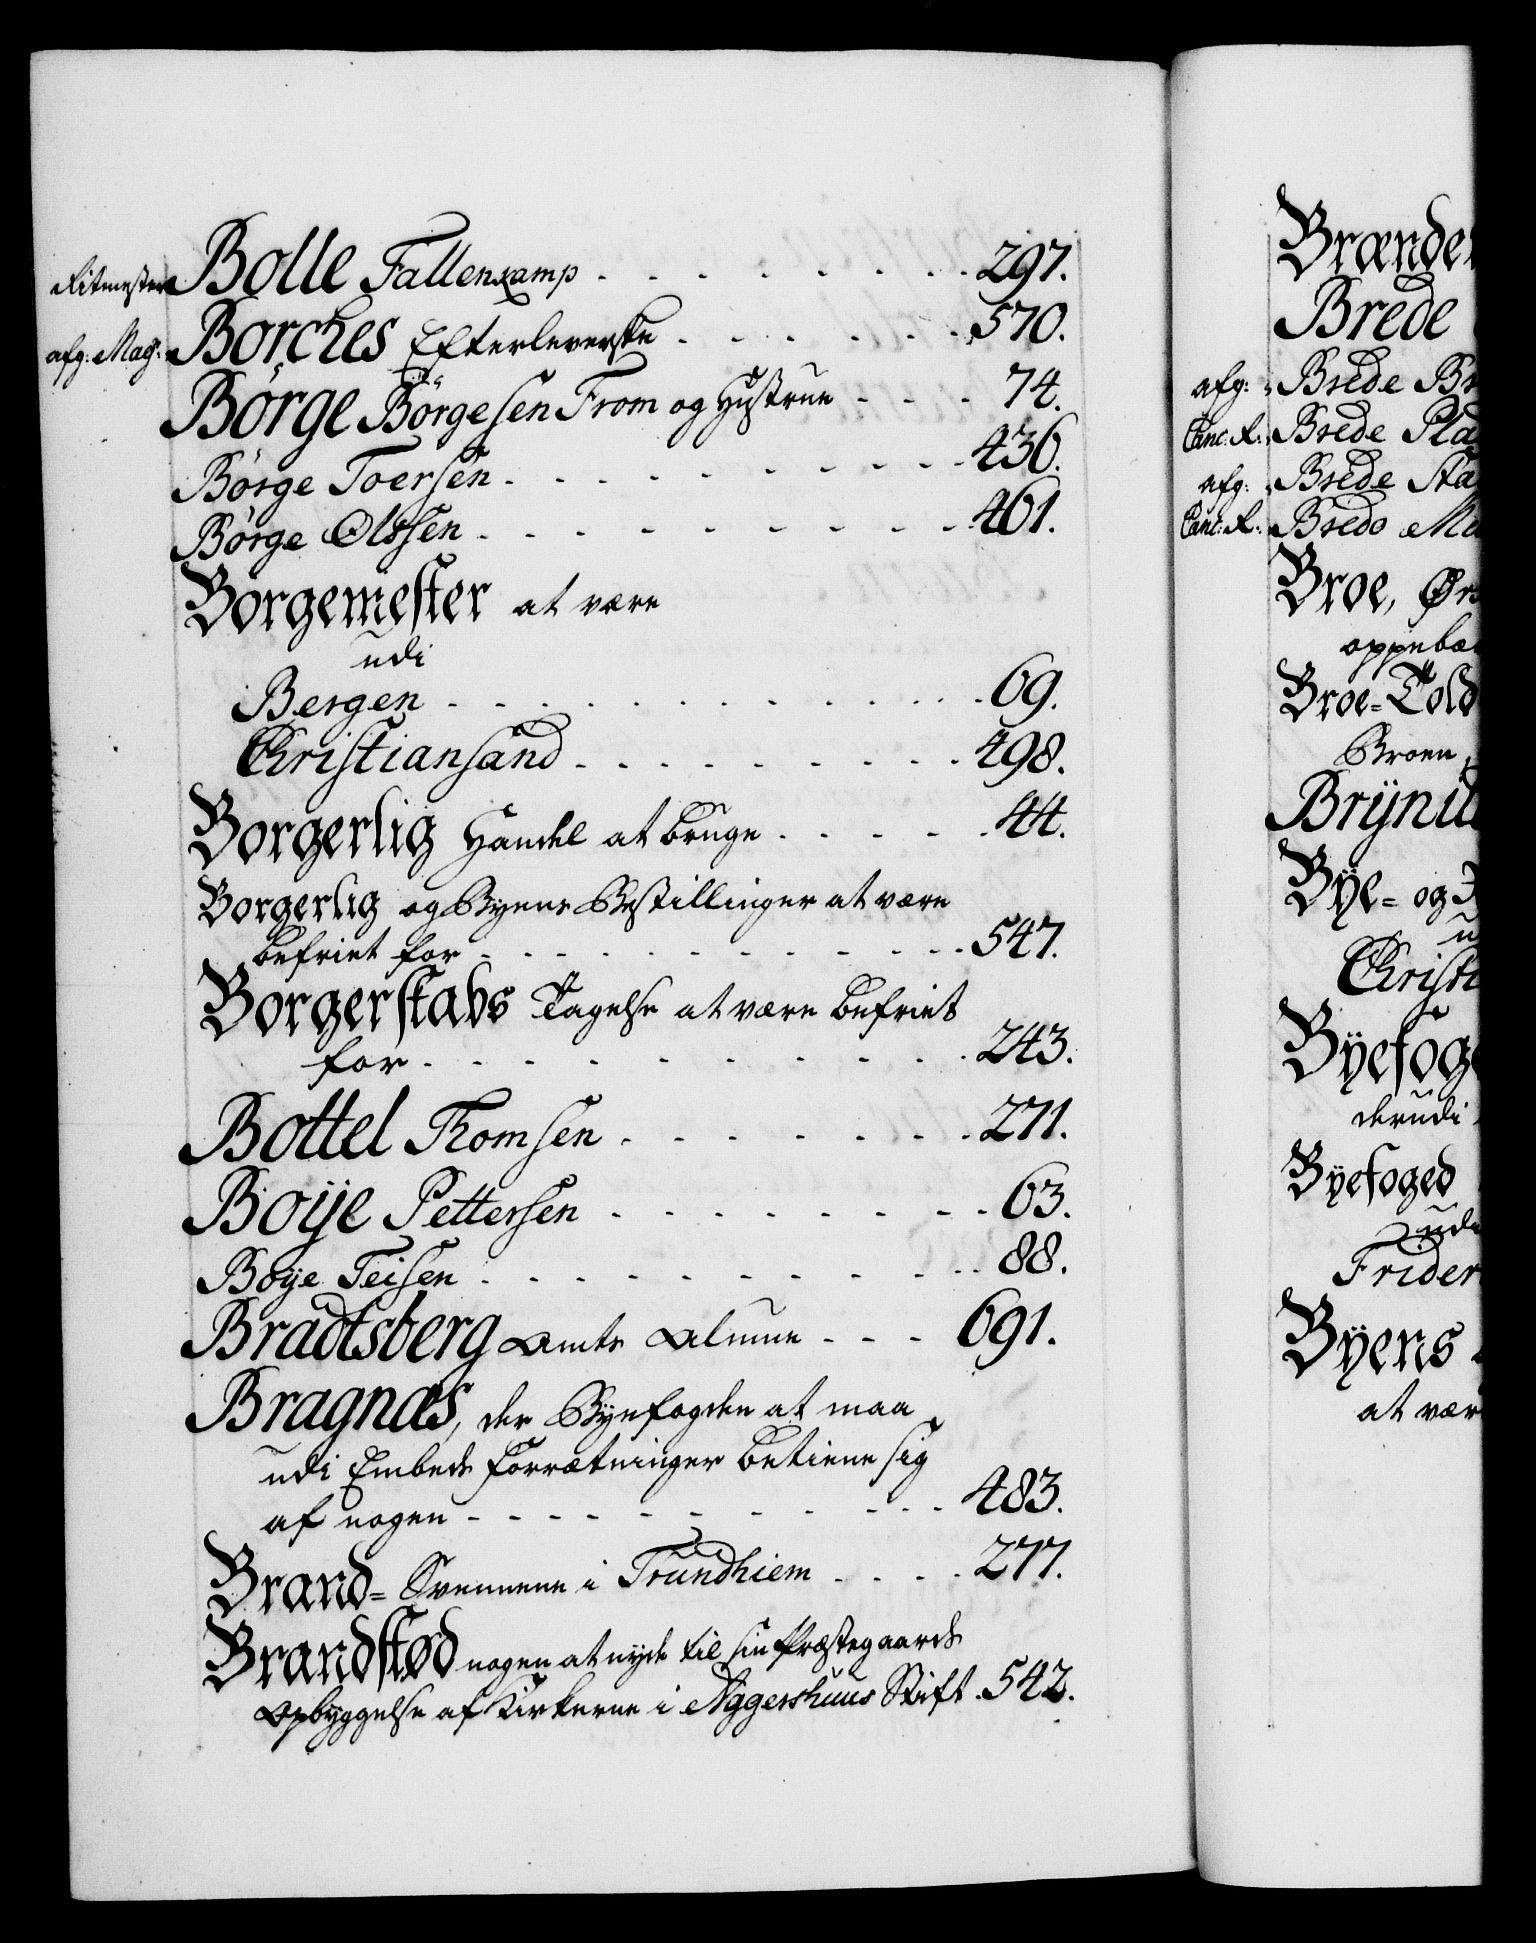 Ritmester Bolle Fallenkamp . . . . . . . . 297.
afg: Mag: Borches Efterleverske . . . . . . 570.
Børge Börgesen From og Hustrue . . . 74.
Børge Toersen . . . . . . . . . 436.
Børge Olssen . . . . . . . . . 461.
Borgemester at være
udi
Bergen . . . . . . . . . . 69.
Christiansand . . . . . . . . . 498.
Borgerlig Handel at bruge . . . . . 44.
Borgerlig og Byens Bestillinger at være
befriet for . . . . . . . . . . 547.
Borgerskabs Tagelse at være befriet
for . . . . . . . . . . 243.
Bottel Thomsen . . . . . . . 271.
Boÿe Pettersen . . . . . . . . 63.
Boye Teisen . . . . . . . . . 88.
Bradtsberg Amts Almue . . . 691.
Bragnæs, der Byefogden at maa
udi Embeds Forrætninger betiene sig
af nogen . . . . . . . . . . 483.
Brand= Svennene i Trundhiem . . . . 277.
Brandskød nogen at nyde til sin Præstegaards
Opbyggelse af Kirkerne i Aggershuus Stift . 542.
Brænde
Brede
afg: Brede Br
Canc: R: Brede Pla
afg: Brede Sta
Canc: R: Bredo Mu
Broe, Ørs
oppebæ
Broe=Told
Broen
Brÿnil
Bÿe= og
u
Christi
Bÿefoge
derudi
Bÿefoged
udi
Frider
Bÿens
at vær